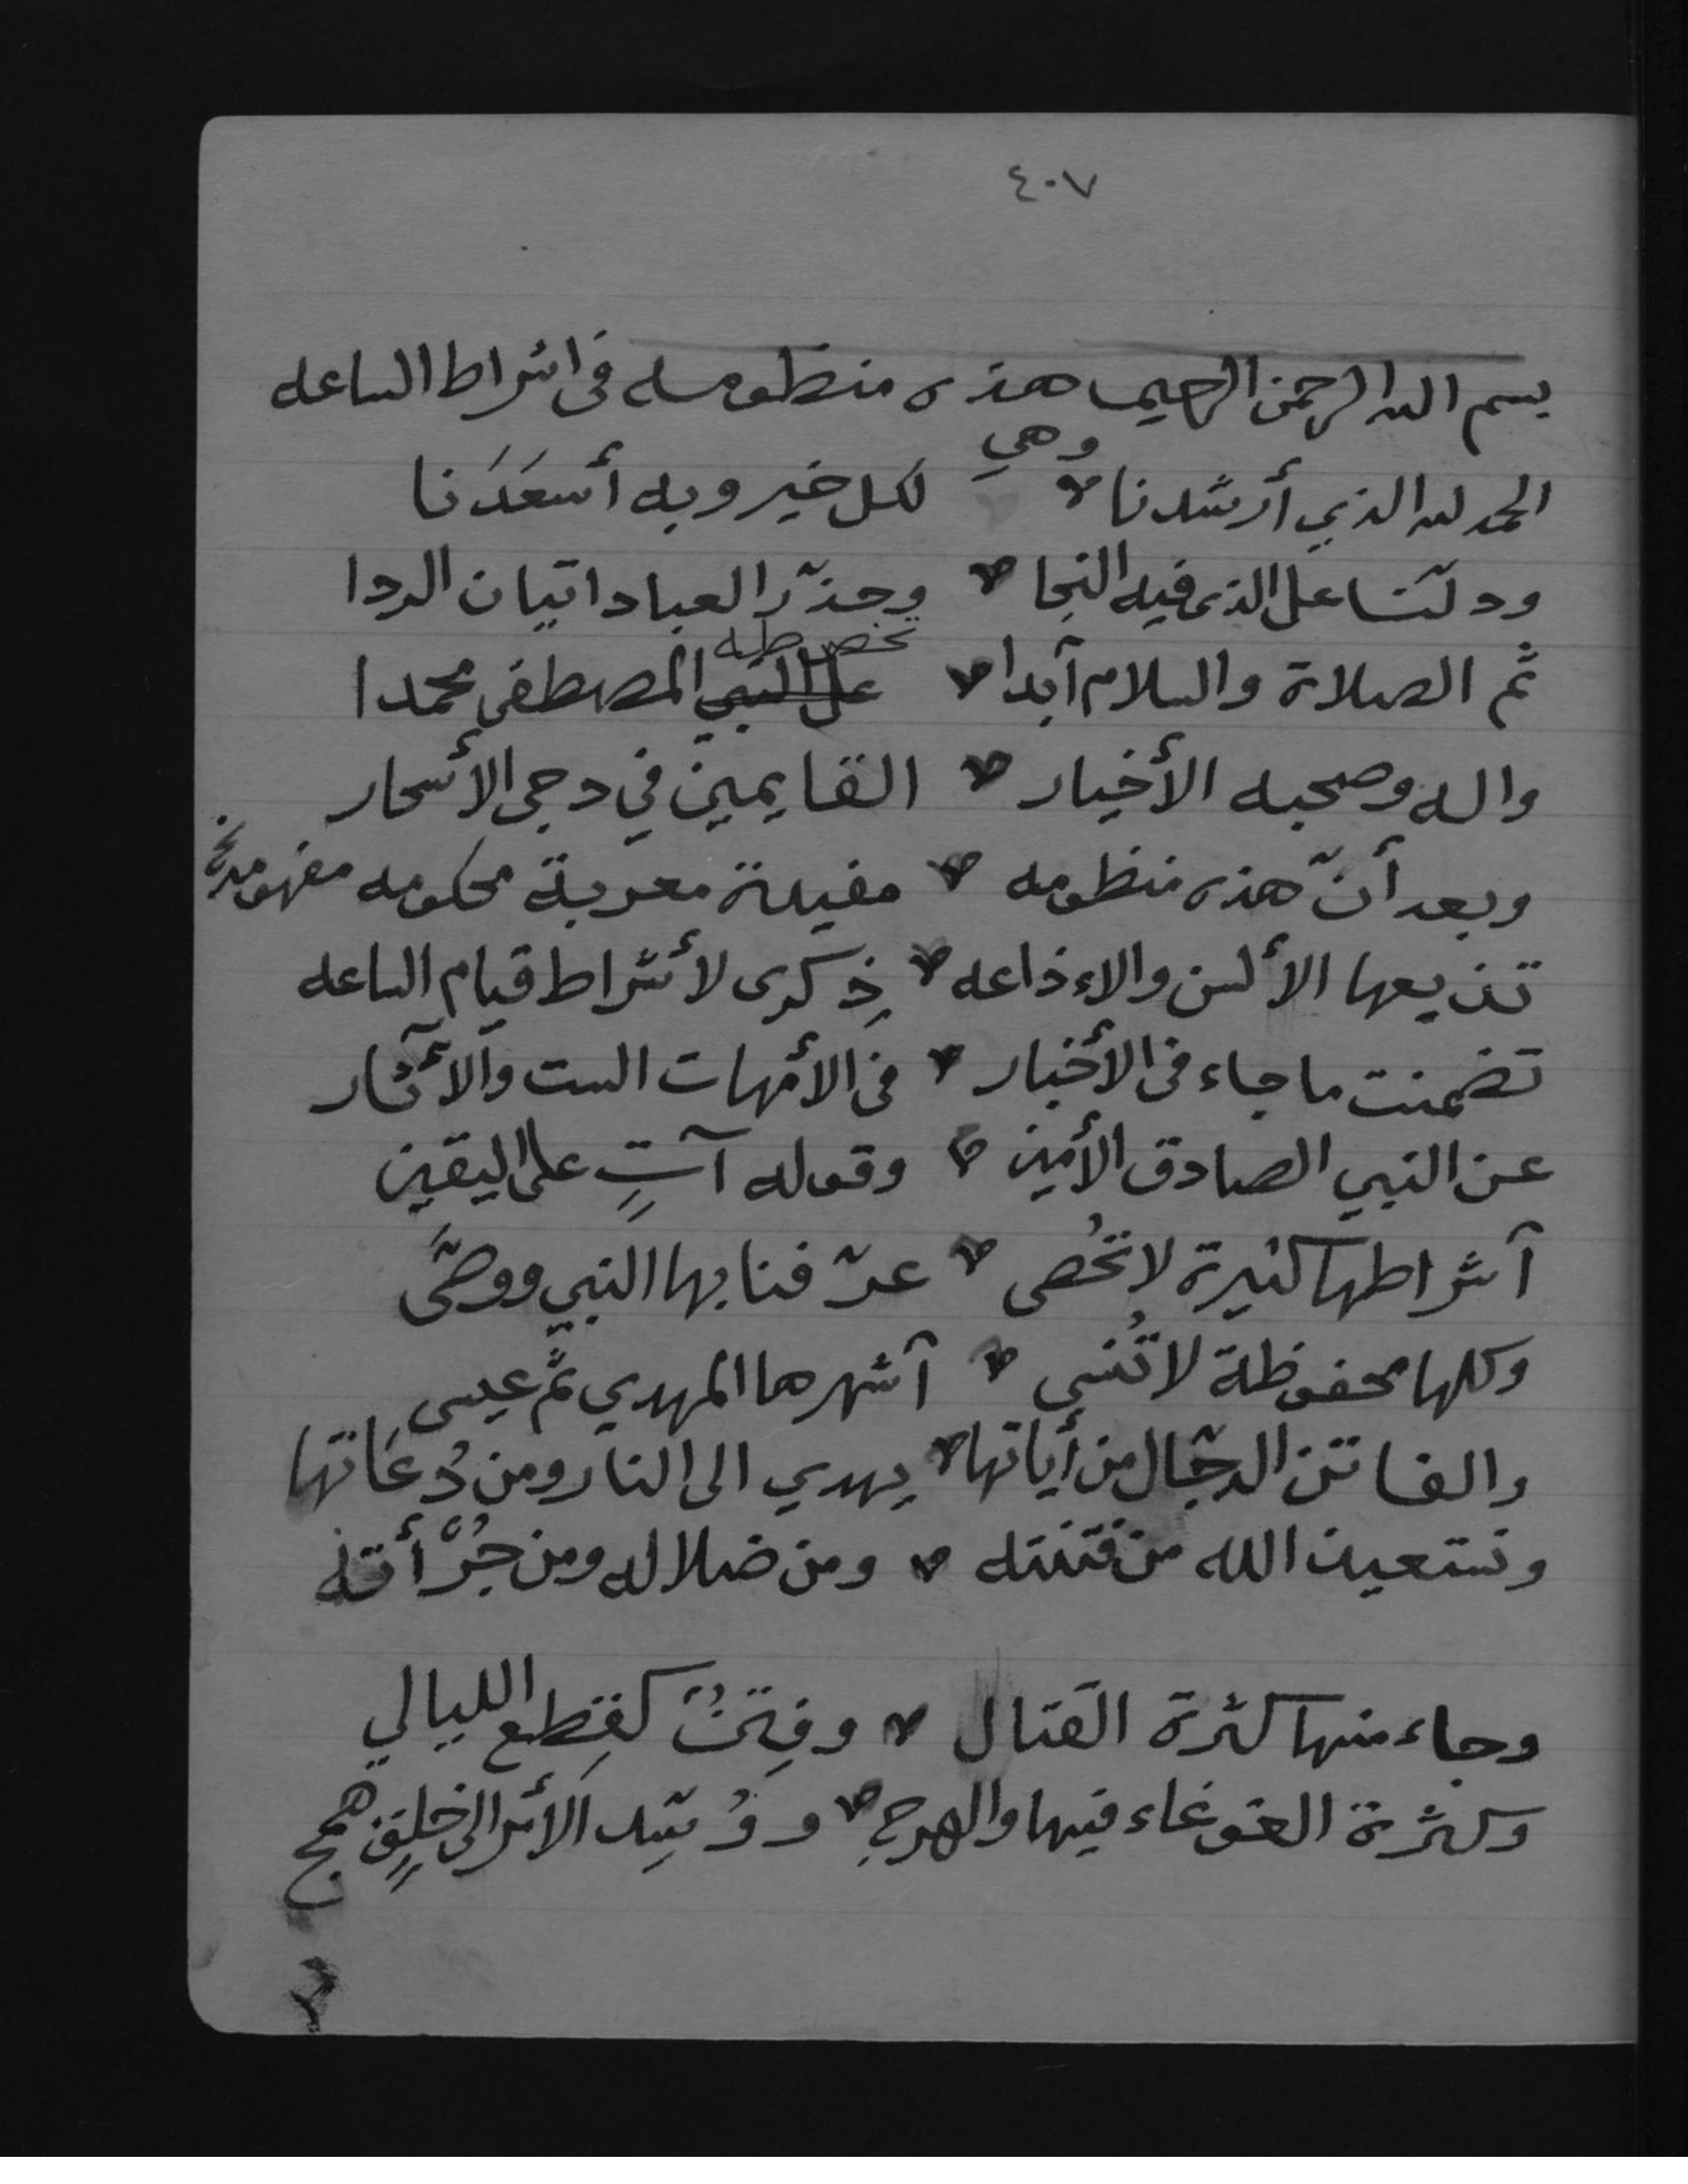 ٤٠٧
بسم الله الرحمن الرحيم هذه منظومه في اشراط الساعه
وهي
الحمد لله الذي أرشدنا لكل خير وبه أسعَدَنا
ودلّنا على الذى فيه النجا وحذّر العباد اتيان الردا
تخص طه
ثم الصلاة والسلام آبدا على النبي المصطفى محمدا
واله وصحبه الأخيار القايمين في دجى الأسحار
وبعد أنّ هذه منظومه مفيدة معربة محكومه مفهومه نخ
تذيعها الألسن والاءذاعه ذِكرى لأشراط قيام الساعه
تضمنت ما جاء في الأخبار في الأمهات الست والآثار
عن النبي الصادق الأمين وقوله آتٍ على اليقين
آشراطها كثيرة لا تُحصى عرّفنا بها النبي ووصَّى
وكلها محفوظة لا تُنسى آشهرها المهدي ثمَّ عيسى
والفاتن الدجّال من أياتها يهدي الى النار ومن دُعَاتها
ونستعيذ الله من فتنته ومن ضلاله ومن جُرْأته
وجاء منها كثرة القتال وفِتَنٌ كقِطع الليالي
وكثرة الغوغاء فيها والهرجِ ووُسّد الأمر الى خلقٍ همج